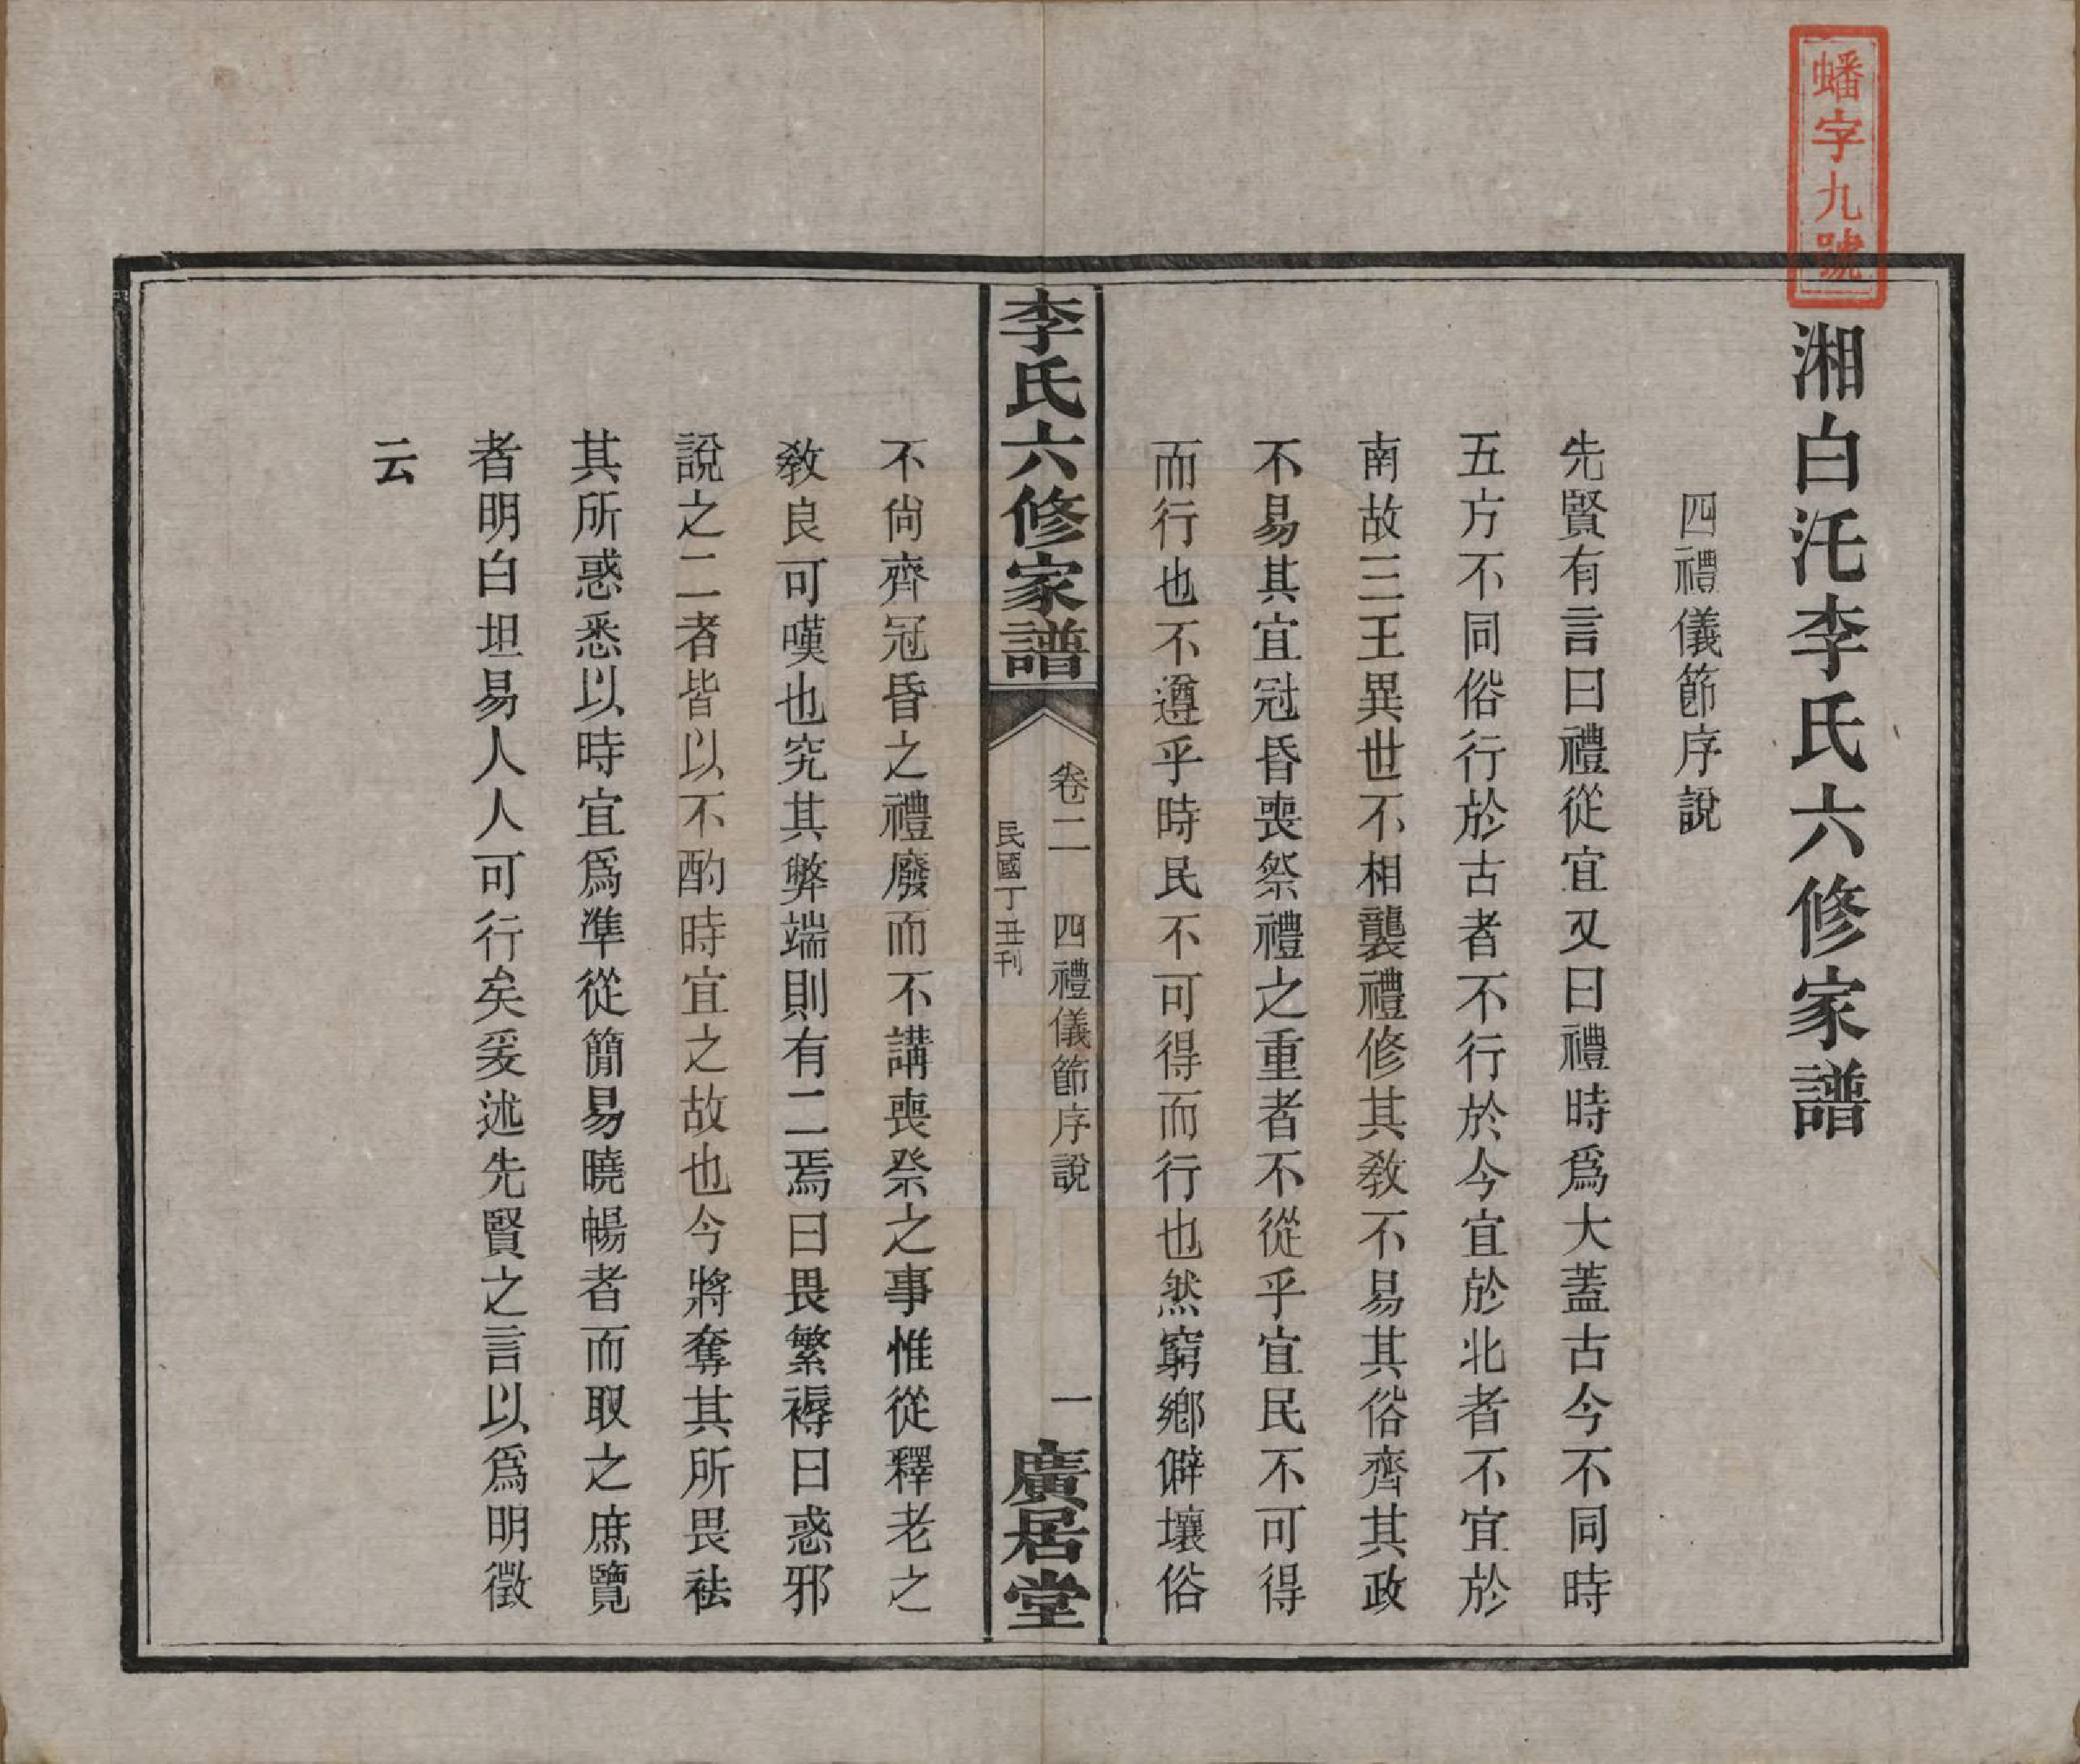 蟠字九號
湘白汑李氏六修家譜
四禮儀節序說
先賢有言曰禮從宜又曰禮時爲大蓋古今不同時
五方不同俗行於古者不行於今宜於北者不宜於
南故三王異世不相襲禮修其敎不易其俗齊其政
不易其宜冠昏喪祭禮之重者不從乎宜民不可得
而行也不遵乎時民不可得而行也然窮鄉僻壤俗
李氏六修家譜
卷二 四禮儀節序說 一
民國丁丑刊
廣居堂
不尙齊冠昏之禮廢而不講喪祭之事惟從釋老之
敎良可嘆也究其弊端則有二焉曰畏繁褥曰惑邪
說之二者皆以不酌時宜之故也今將奪其所畏祛
其所惑悉以時宜爲準從簡易曉暢者而取之庶覽
者明白坦易人人可行矣爰述先賢之言以爲明徵
云